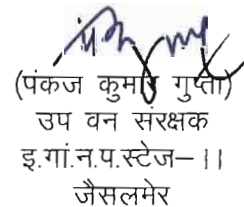 (पंकज कुमार गुप्ता)
उप वन संरक्षक
इ.गां.न.प.स्टेज–।।
जैसलमेर